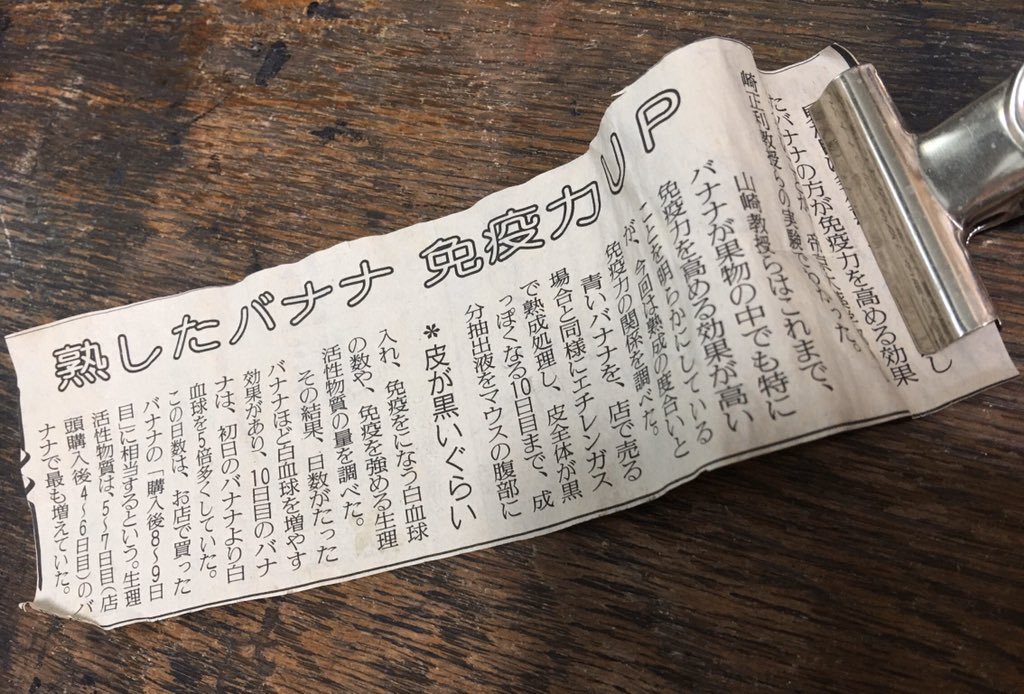 熟したバナナ 免疫力UP
たバナナの方が免疫力を高める効果
崎正利教授らの実験で
った。
山崎教授らはこれまで、
バナナが果物の中でも特に
免疫力を高める効果が高い
ことを明らかにしている
が、今回は熟成の度合いと
免疫力の関係を調べた。
青いバナナを、店で売る
場合と同様にエチレンガス
で熟成処理し、皮全体が黒
っぽくなる10日目まで、成
分抽出液をマウスの腹部に
*皮が黒いぐらい
入れ、免疫をになう白血球
の数や、免疫を強める生理
活性物質の量を調べた。
その結果、日数がたった
バナナほど白血球を増やす
効果があり、10日目のバナ
ナは、初日のバナナより白
血球を5倍多くしていた。
この日数は、お店で買った
バナナの「購入後8~9日
目」に相当するという。生理
活性物質は、5~7日目(店
頭購入後4~6日目)のバ
ナナで最も増えていた。